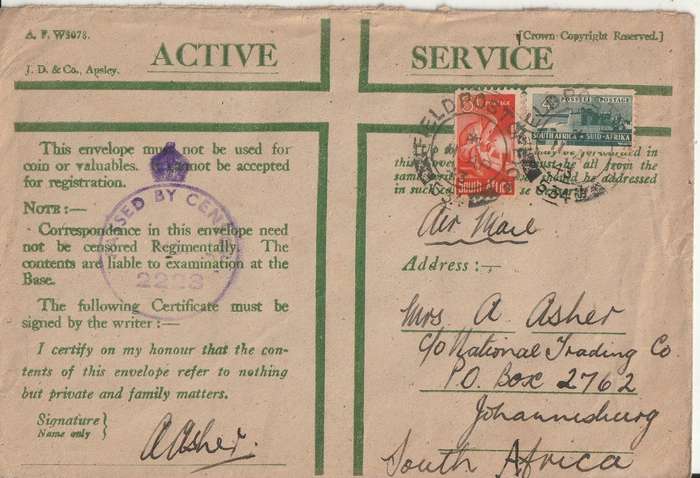 A. F. W3078.
J. D. & Co., Apsley.
ACTIVE SERVICE
[Crown Copyright Reserved.]
This envelope must not be used for
coin or valuables. It cannot be accepted
for registration.
NOTE:—
Correspondence in this envelope need
not be censored Regimentally. The
contents are liable to examination at the
Base.
The following Certificate must be
signed by the writer:—
I certify on my honour that the con-
tents of this envelope refer to nothing
but private and family matters.
Signature }
Name only
AAsher.
PASSED BY CENSOR
2223
FIELD POST
POSTAGE
SOUTH AFRICA
POSSEEL POSTAGE
SOUTH AFRICA SUID-AFRIKA
Up to
be forwarded in
this must be all from the
same should be addressed
in
Air Mail
Address:—
Mrs A Asher
C/o National Trading Co.
P.O. Box 2762
Johannesburg
South Africa